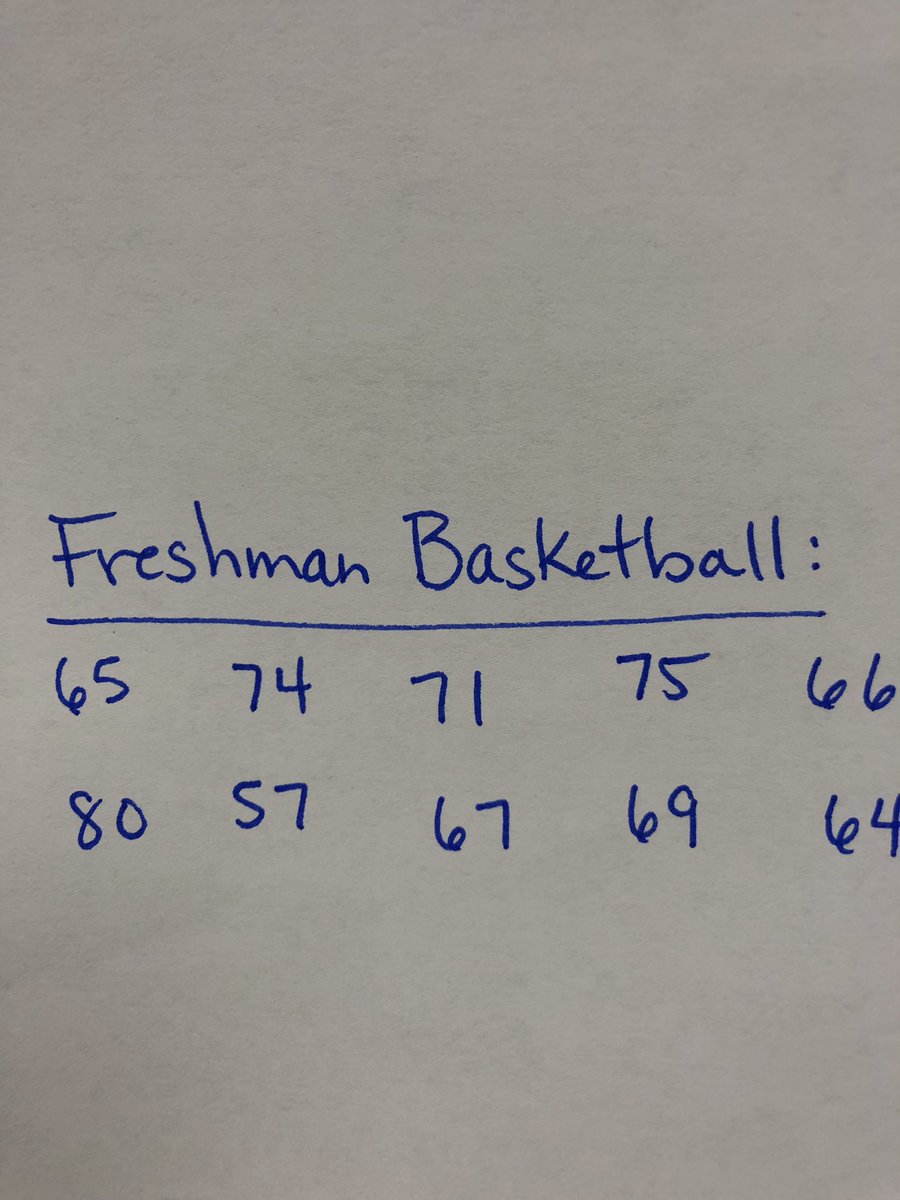 Freshman Basketball:
65 74 71 75 66
80 57 67 69 64